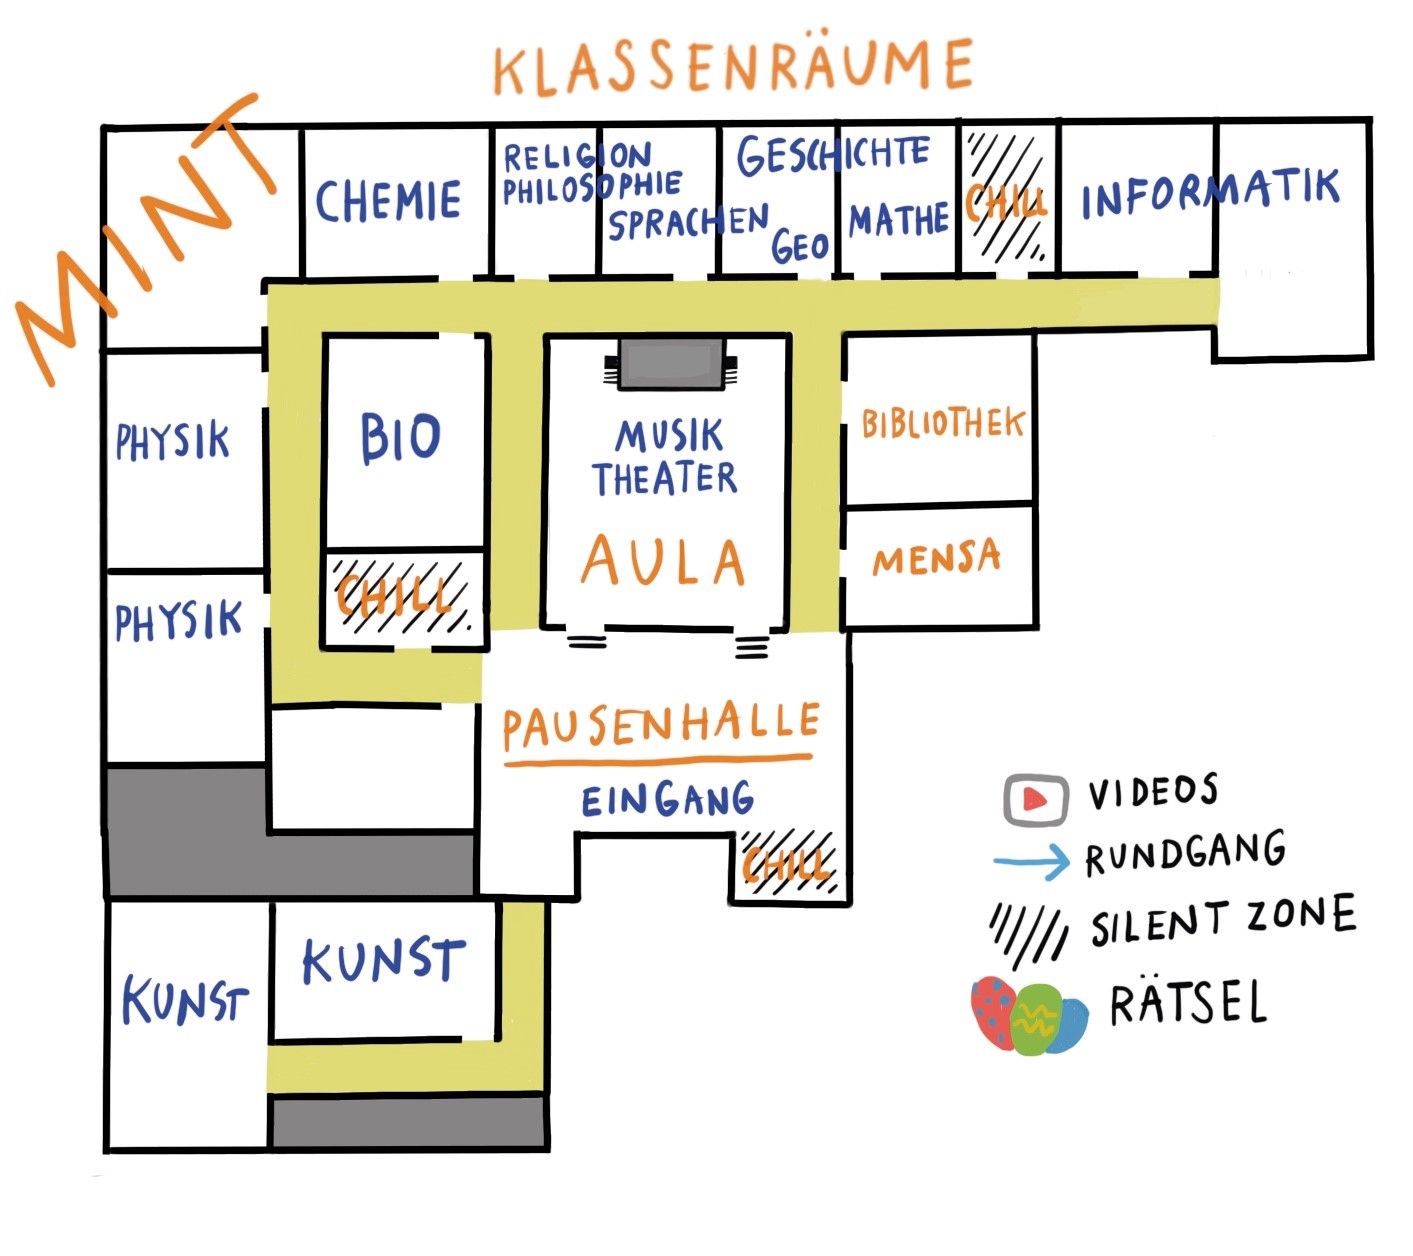 KLASSENRÄUME
MINT
CHEMIE
RELIGION
PHILOSOPHIE
SPRACHEN
GESCHICHTE
GEO
MATHE
CHILL
INFORMATIK
PHYSIK
BIO
MUSIK
THEATER
AULA
BIBLIOTHEK
MENSA
CHILL
PHYSIK
PAUSENHALLE
EINGANG
CHILL
KUNST
KUNST
VIDEOS
RUNDGANG
SILENT ZONE
RÄTSEL